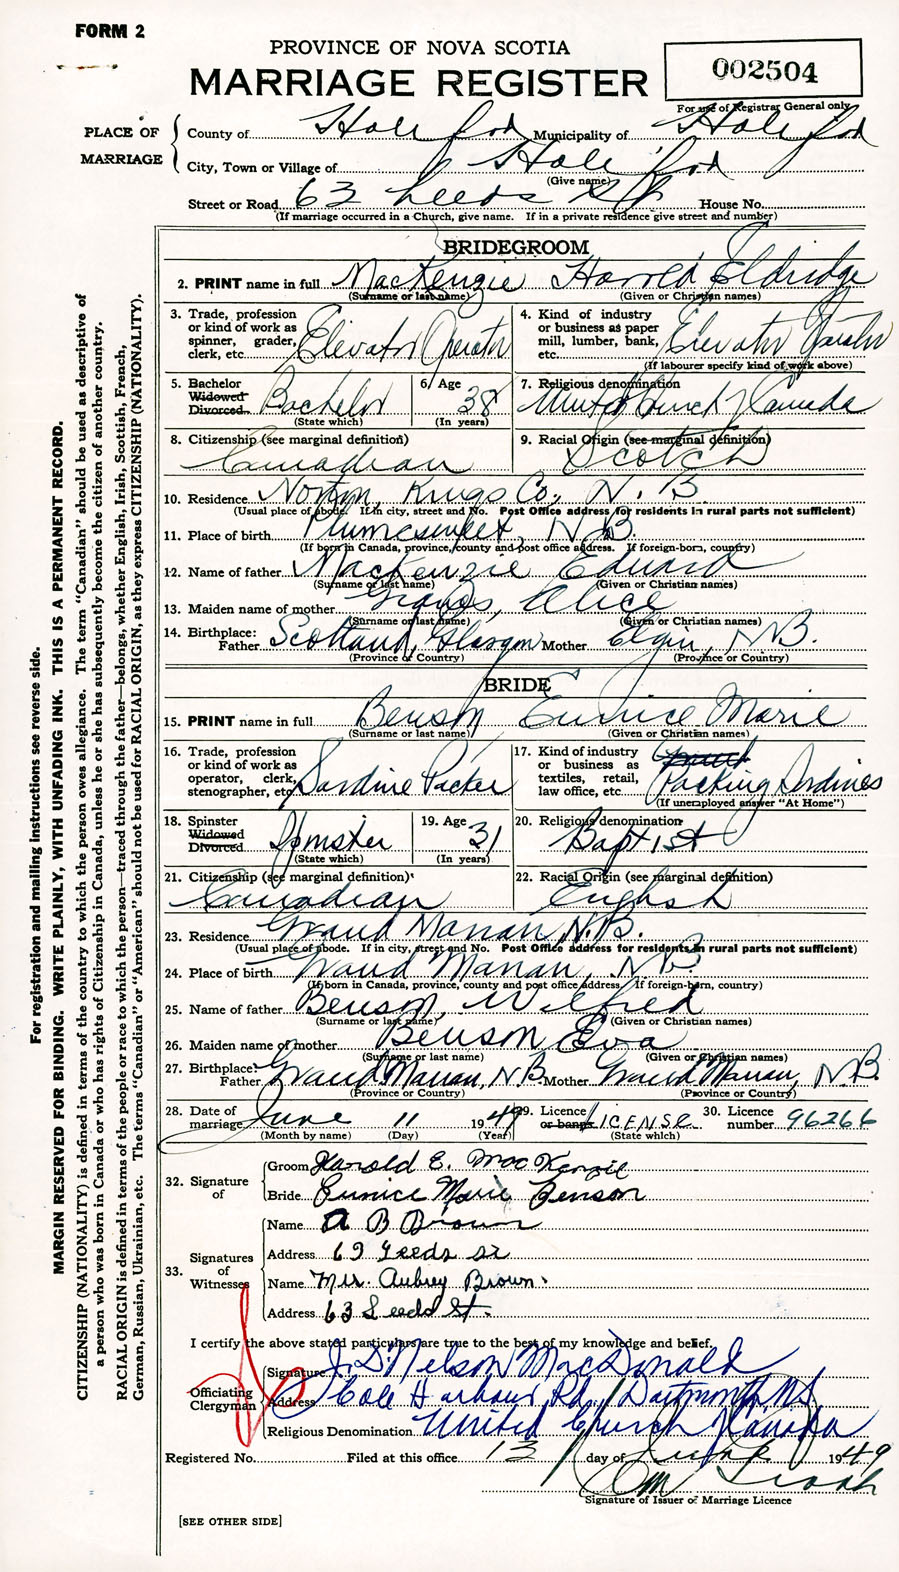 FORM 2
PROVINCE OF NOVA SCOTIA
MARRIAGE REGISTER
002504
For use of Registrar General only
PLACE OF MARRIAGE
County of Halifax Municipality of Halifax
City, Town or Village of Halifax
(Give name)
Street or Road 63 Leeds St House No.
(If marriage occurred in a Church, give name. If in a private residence give street and number)
BRIDEGROOM
2. PRINT name in full MacKenzie Harold Eldridge
(Surname or last name) (Given or Christian names)
3. Trade, profession or kind of work as spinner, grader, clerk, etc. Elevator Operator
4. Kind of industry or business as paper mill, lumber, bank, etc. Elevator Operator
(If labourer specify kind of work above)
5. Bachelor Widowed Divorced Bachelor
(State which)
6. Age 38
(In years)
7. Religious denomination United Church of Canada
8. Citizenship (see marginal definition) Canadian
9. Racial Origin (see marginal definition) Scotch
10. Residence Norton, Kings Co., N. B.
(Usual place of abode. If in city, street and No. Post Office address for residents in rural parts not sufficient)
11. Place of birth Plumesweep, N.B.
(If born in Canada, province, county and post office address. If foreign-born, country)
12. Name of father MacKenzie Edward
(Surname or last name) (Given or Christian names)
13. Maiden name of mother Alice
(Surname or last name) (Given or Christian names)
14. Birthplace: Father Scotland, Glasgow Mother Elgin, N.B.
(Province or Country) (Province or Country)
BRIDE
15. PRINT name in full Benson Eunice Marie
(Surname or last name) (Given or Christian names)
16. Trade, profession or kind of work as operator, clerk, stenographer, etc. Sardine Packer
17. Kind of industry or business as textiles, retail, law office, etc. Packing Sardines
(If unemployed answer "At Home")
18. Spinster Widowed Divorced Spinster
(State which)
19. Age 31
(In years)
20. Religious denomination Baptist
21. Citizenship (see marginal definition) Canadian
22. Racial Origin (see marginal definition) English
23. Residence Grand Manan, N.B.
(Usual place of abode. If in city, street and No. Post Office address for residents in rural parts not sufficient)
24. Place of birth Grand Manan, N.B.
(If born in Canada, province, county and post office address. If foreign-born, country)
25. Name of father Benson, Wilfred
(Surname or last name) (Given or Christian names)
26. Maiden name of mother Benson Eva
(Surname or last name) (Given or Christian names)
27. Birthplace: Father Grand Manan, N.B. Mother Grand Manan, N.B.
(Province or Country) (Province or Country)
28. Date of marriage June 11 1949
(Month by name) (Day) (Year)
29. Licence or banns LICENSE
(State which)
30. Licence number 96266
32. Signature of
Groom Harold E. MacKenzie
Bride Eunice Marie Benson
33. Signatures of Witnesses
Name A B Brown
Address 63 Leeds St
Name Mrs. Aubrey Brown
Address 63 Leeds St.
I certify the above stated particulars are true to the best of my knowledge and belief.
Officiating Clergyman
Signature J. D. Nelson MacDonald
Address Cole Harbour Rd., Dartmouth, N.S.
Religious Denomination United Church of Canada
Registered No. Filed at this office 13 day of June 1949
Signature of Issuer of Marriage Licence
[SEE OTHER SIDE]
For registration and mailing instructions see reverse side.
MARGIN RESERVED FOR BINDING. WRITE PLAINLY, WITH UNFADING INK. THIS IS A PERMANENT RECORD.
CITIZENSHIP (NATIONALITY) is defined in terms of the country to which the person owes allegiance. The term "Canadian" should be used as descriptive of
a person who was born in Canada or who has rights of Citizenship in Canada, unless he or she has subsequently become the citizen of another country.
RACIAL ORIGIN is defined in terms of the people or race to which the person—traced through the father—belongs, whether English, Irish, Scottish, French,
German, Russian, Ukrainian, etc. The terms "Canadian" or "American" should not be used for RACIAL ORIGIN, as they express CITIZENSHIP (NATIONALITY).